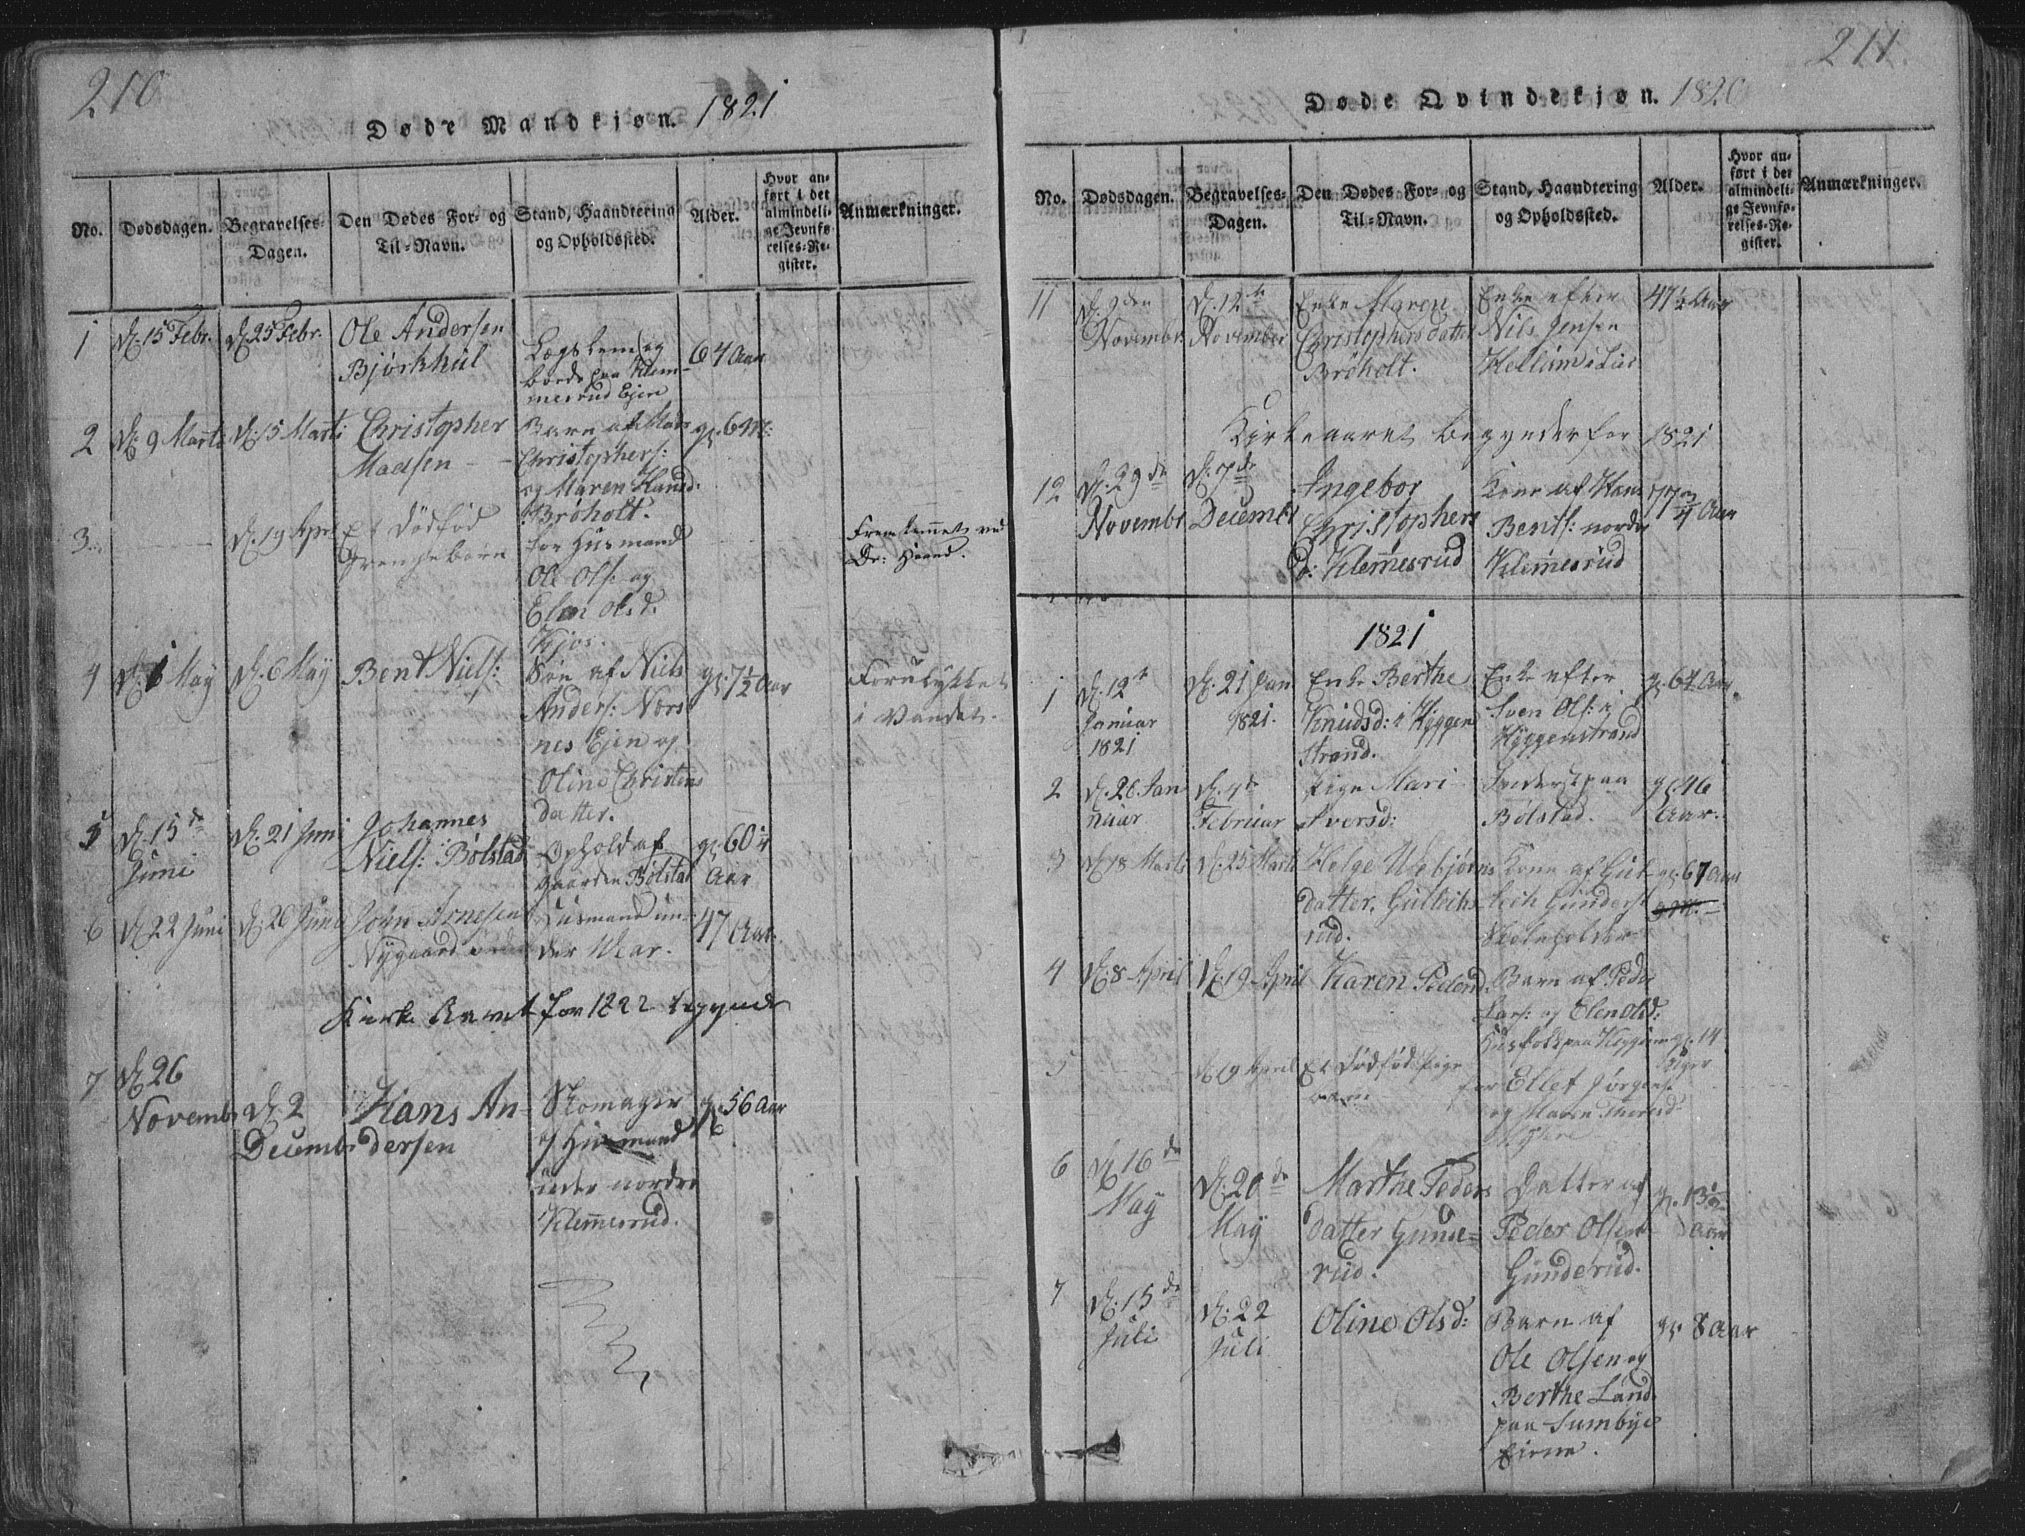 210
Døde Mandkjøn. 1821
No.
Dødsdagen.
Begravelses-
Dagen.
Den Dødes For- og
Til-Navn.
Stand, Haandtering
og Opholdssted.
Alder.
Hvor an-
ført i det
almindeli-
ge Jevnfø-
relses-Re-
gister.
Anmærkninger.
1
D. 15 Febr.
D. 25 Febr.
Ole Andersen
Bjørkhül
Lægslem og
paa Klem-
mesrud Ejen
64 Aar
2
D. 9 Marti
D. 15 Marti
Christopher
Madsen
Barn af Mads
Christophers:
og Maren Hansd:
Brøholt.
gl. 6 M:
3.
D. 19 Apr
Et Dödfød
Drengebarn
for Husmand
Ole Ols: og
Elen Olsd.
Kjos.
Fremkommet ved
Dr: Haand.
4
D. 1 May
D. 6 May
Bent Niels:
Søn af Niels
Anders: Nors
nes Ejen og
Oline Christens
datter.
gl. 7½ Aar
Forulykket
i Vandet.
5
D. 15de
Juni
D. 21 Juni
Johannes
Niels: Bølstad
Ophold af
gaarden Bølstad
gl. 60
Aar
6
D. 22 Juni
D. 26 Juny
John Arnesen
Nygaard
Husmand un-
der
47 Aar
Kirke Aaret for 1822 begynder
7
D. 26
Novembr
D. 2
Decembr
Hans An-
dersen
Skomager
og Husmand
under nordre
Klemmesrud.
gl. 56 Aar
211
Døde Qvindekjøn. 1820
No.
Dødsdagen.
Begravelses-
Dagen.
Den Dødes For- og
Til-Navn.
Stand, Haandtering
og Opholdssted.
Alder.
Hvor an-
ført i det
almindeli-
ge Jevnfø-
relses-Re-
gister.
Anmærkninger.
11
D. 9den
Novembr
D. 12te
November
Enke Maren
Christophersdatter
Brøholt.
Enke efter
Nils Jensen
47½ Aar
Kirkeaaret begynder for 1821
12
D. 29de
Novembr
D. 7de
Decembr
Ingebor
Christophers
D: Klemmesrud
Kone af Hans
Bents: nordre
Klemmesrud
77¾ Aar
1821
1
D. 12te
Januar
1821
D. 21 Jan
1821.
Enke Berthe
Knudsd: i Hÿggen
strand.
Enke efter
Sven Ols: i
Hÿggenstrand
gl. 64 Aar.
2
D. 26 Jan
nuar
D. 4de
Februar
Pige Mari
Iversd:
Inderst paa
Bölstad.
gl. 46
Aar.
3
D. 18 Marts
D. 25 Marts
Helge Uebjørns
datter. Gulleichs
rud.
Kone af Gul-
leich Gunders:
Skoleholder
gl. 67 Aar
4
D. 8 April
D. 19 April
Karen Pedersd.
Barn af Peder
Lars: og Elen Olsd:
Husfolk paa Heggum
gl. 14
Uger
5
D. 19 April
Et Dødfød Pige
barn
for Ellef Jørgens:
og Maren Thoresd:
6
D. 16de
May
D. 20de
May
Marthe Peders
datter Gunde-
rud.
Datter af
Peder Olsen
Gunderud.
gl. 13
Aar
7
D. 15de
Juli
D. 22
Juli
Oline Olsd:
Barn af
Ole Olsen og
Berthe Larsd
paa Sumbye
Eierne.
gl. 8 Aar